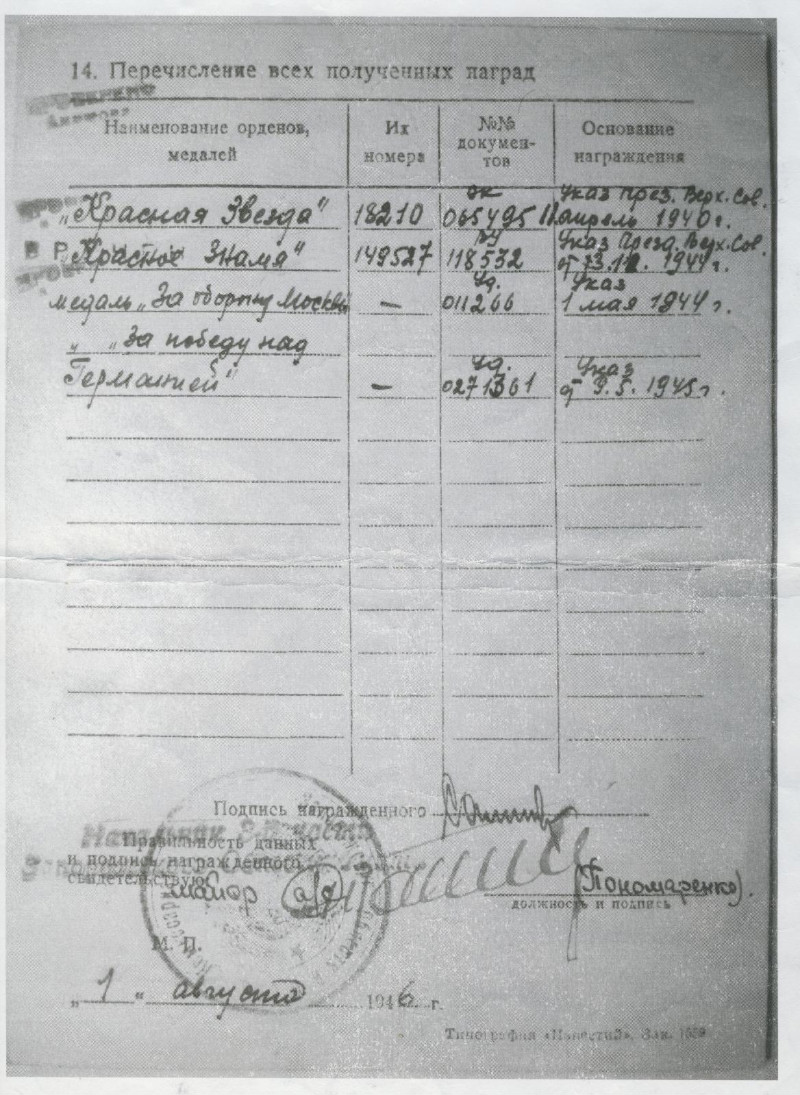 14. Перечисление всех полученных наград
Наименование орденов, медалей
Их номера
№№ документов
Основание награждения
„Красная Звезда" 18210 065495 11 апрель 1940 г.
Указ През. Верх. Сов.
„Красное Знамя" 149527 118532
Указ Презд. Верх. Сов.
1944 г.
медаль „За оборону Москвы" — Уд. 011266 Указ 1 мая 1944 г.
„ „За победу над
Германией" — Уд. 0271361 Указ от 9.5. 1945 г.
Подпись награжденного
Начальник
Правильность данных
и подпись награжденного
свидетельствую
майор а/с (Пономаренко).
должность и подпись
М. П.
„1" августа 1946 г.
Типография «Известий». Зак.